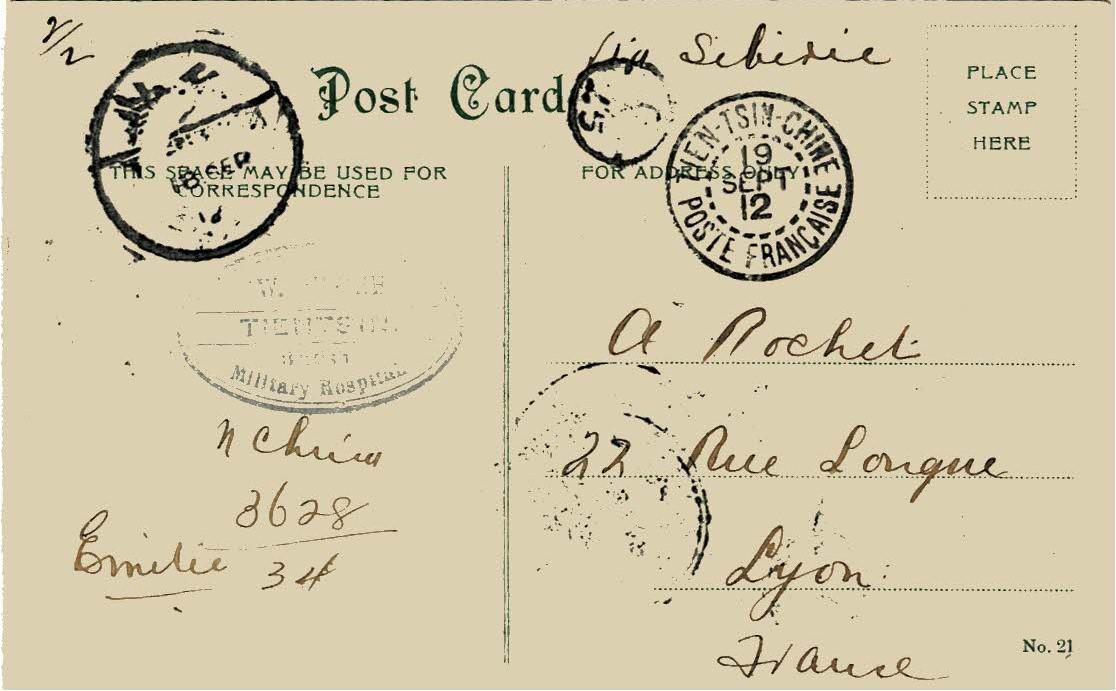 2/2
Via Sibirie
Post Card
PLACE
STAMP
HERE
THIS SPACE MAY BE USED FOR
CORRESPONDENCE
FOR ADDRESS ONLY
18 SEP
TIEN-TSIN-CHINE
19
SEPT
12
POSTE FRANÇAISE
TIENTSIN
Military Hospital
A Rochet
22 Rue Longue
Lyon
France
N China
3628
34
Emilie
No. 21